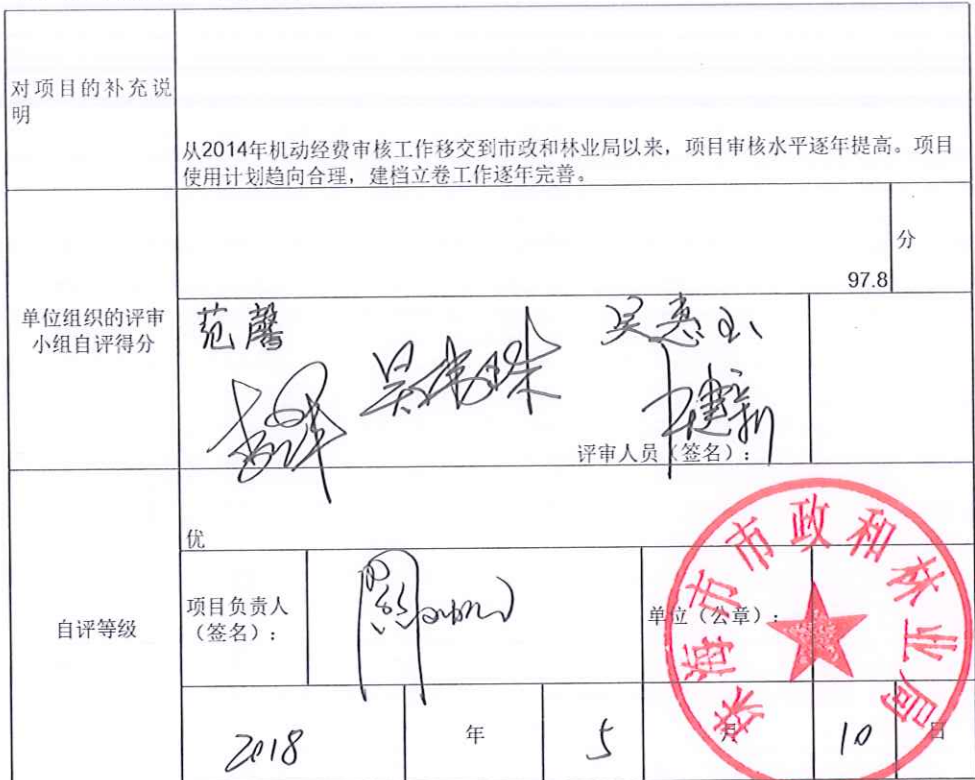 对项目的补充说
明
从2014年机动经费审核工作移交到市政和林业局以来，项目审核水平逐年提高。项目
使用计划趋向合理，建档立卷工作逐年完善。
单位组织的评审
小组自评得分
97.8
分
范馨
吴惠玉
评审人员（签名）：
自评等级
优
项目负责人
（签名）：
单位（公章）：
珠海市市政和林业局
2018
年
5
月
10
日